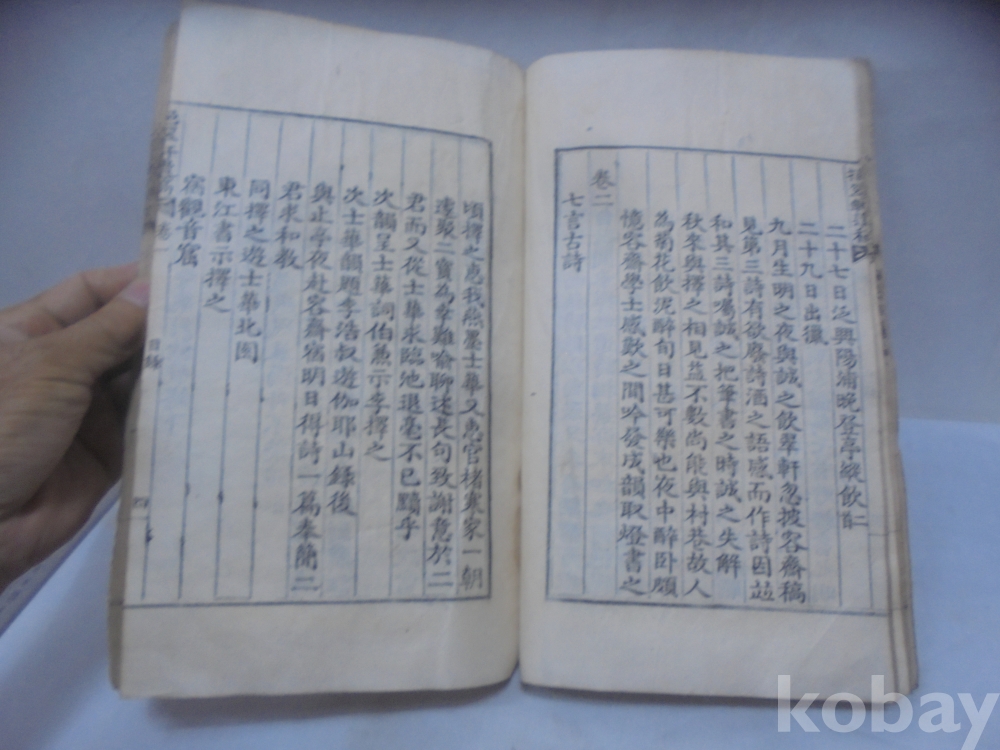 二十七日泛興陽浦晚登亭縱飲二首
二十九日出獵
九月生明之夜與誠之飲翠軒忽披容齋稿
見第三詩有欲廢詩酒之語感而作詩因並
和其三詩囑誠之把筆書之時誠之失解
秋來與擇之相見並不數尚能與村巷故人
為菊花飲泥醉旬日甚可樂也夜中醉臥頗
憶容齋學士感歎之間吟發成韻取燈書之
卷二
七言古詩
頃擇之惠我燕墨士華又惠官楮寒家一朝
遽聚二寶為幸難喻聊述長句致謝意於二
君而又從士華求臨池退毫不已黷乎
次韻呈士華詞伯兼示李擇之
次士華韻題李浩叔遊伽耶山錄後
與止亭夜赴容齋宿明日得詩一篇奉簡二
君求和教
同擇之遊士華北園
東江書示擇之
宿觀音窟
目錄
四
kobay